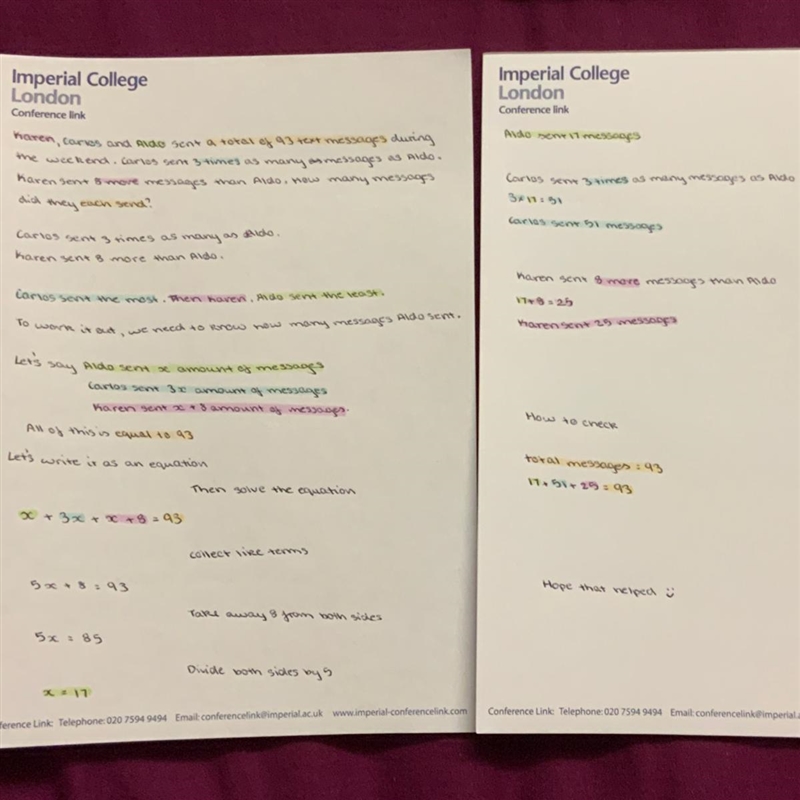 Imperial College
London
Conference link
Karen, Carlos and Aldo sent a total of 93 text messages during
the weekend. Carlos sent 3 times as many as messages as Aldo.
Karen sent 8 more messages than Aldo. How many messages
did they each send?
Carlos sent 3 times as many as Aldo.
Karen sent 8 more than Aldo.
Carlos sent the most. Then Karen. Aldo sent the least.
To work it out, we need to know how many messages Aldo sent.
Let's say Aldo sent x amount of messages
Carlos sent 3x amount of messages
Karen sent x + 8 amount of messages.
All of this is equal to 93
Let's write it as an equation
Then solve the equation
x + 3x + x + 8 = 93
collect like terms
5x + 8 = 93
Take away 8 from both sides
5x = 85
Divide both sides by 5
x = 17
ference Link: Telephone: 020 7594 9494 Email: conferencelink@imperial.ac.uk www.imperial-conferencelink.com
Imperial College
London
Conference link
Aldo sent 17 messages
Carlos sent 3 times as many messages as Aldo
3 x 17 = 51
Carlos sent 51 messages
Karen sent 8 more messages than Aldo
17 + 8 = 25
Karen sent 25 messages
How to check
total messages = 93
17 + 51 + 25 = 93
Hope that helped :)
Conference Link: Telephone: 020 7594 9494 Email: conferencelink@imperial.a